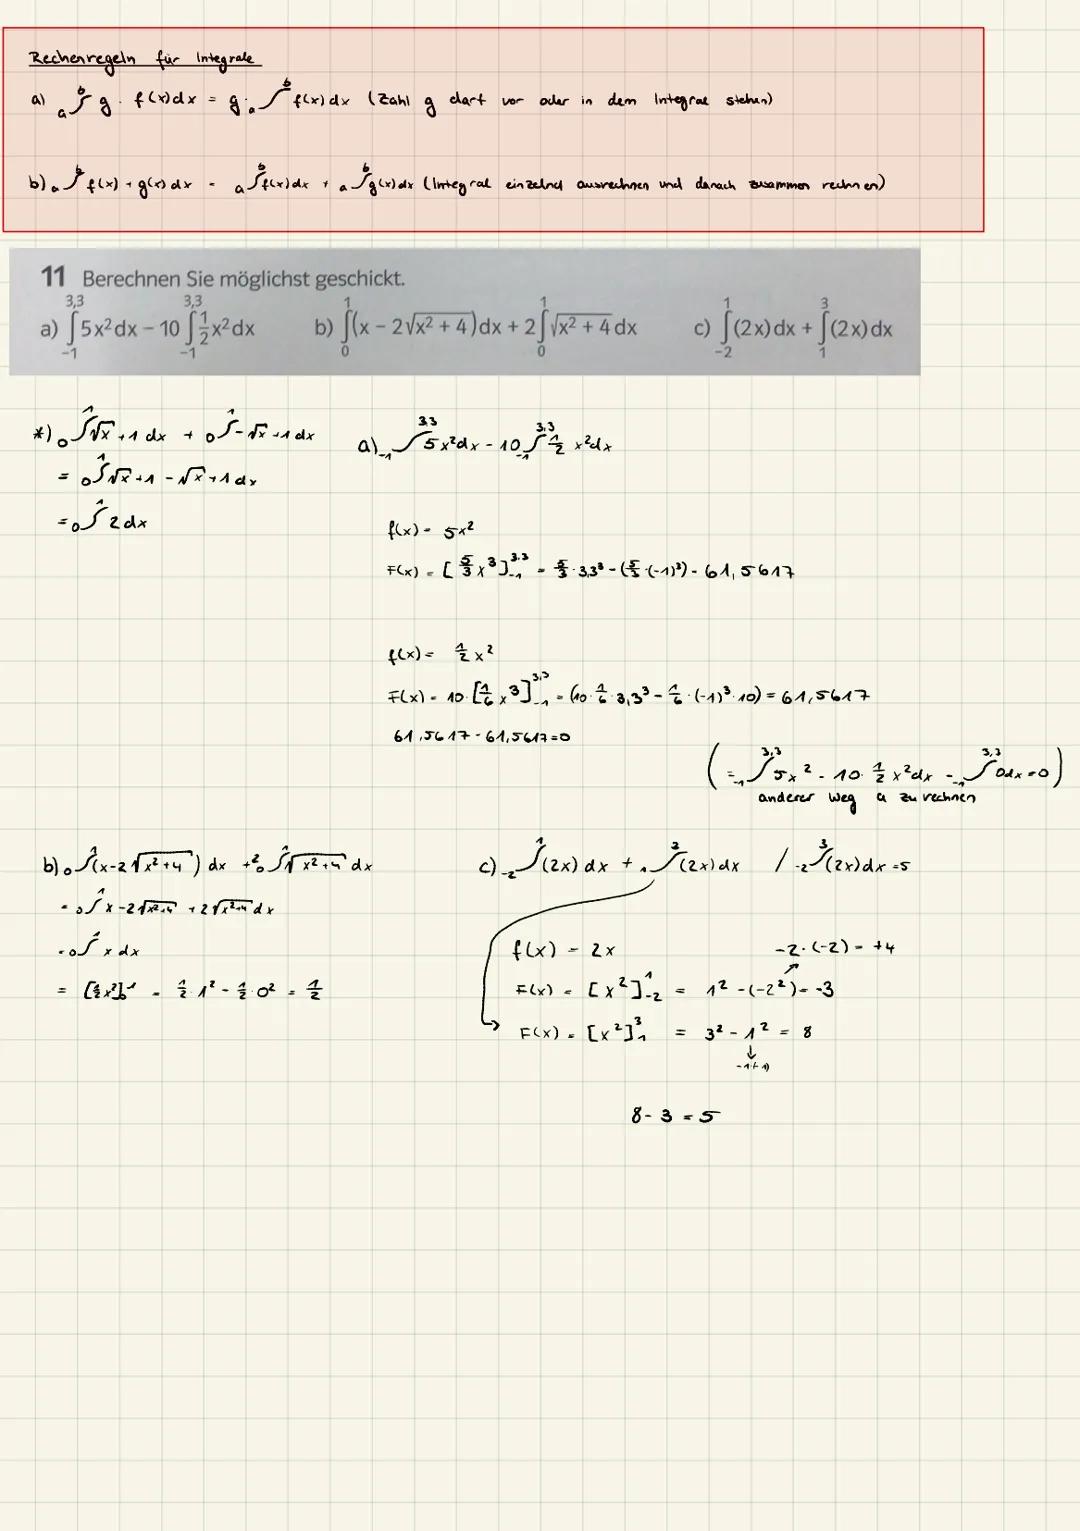 Rechenregeln für Integrale
a) a∫b g · f(x)dx = g · a∫b f(x)dx (Zahl g darf vor oder in dem Integral stehen)
b) a∫b f(x) + g(x)dx = a∫b f(x)dx + a∫b g(x)dx (Integral einzelnd ausrechnen und danach zusammen rechnen)
11 Berechnen Sie möglichst geschickt.
a) ∫₋₁^3,3 5x²dx − 10 ∫₋₁^3,3 ½x²dx b) ∫₀¹(x − 2√(x² + 4))dx + 2∫₀¹√(x² + 4)dx c) ∫₋₂¹(2x)dx + ∫₁³(2x)dx
*) ₀∫¹√x + 1 dx + ₀∫¹ -√x + 1 dx
= ₀∫¹√x + 1 - √x + 1 dx
= ₀∫¹ 2 dx
a) ₋₁∫^3,3 5x²dx - 10 ₋₁∫^3,3 ½ x²dx
f(x) = 5x²
F(x) = [5/3 x³]₋₁^3,3 = 5/3 · 3,3³ - (5/3 · (-1)³) = 61,5617
f(x) = ½x²
F(x) = 10 · [1/6 x³]₋₁^3,3 = (10 · 1/6 · 3,3³ - 1/6 · (-1)³ · 10) = 61,5617
61,5617 - 61,5617 = 0
(= ₋₁∫^3,3 5x² - 10 · ½ x²dx = ₋₁∫^3,3 0dx = 0)
anderer Weg a zu rechnen
b) ₀∫¹(x-2√(x²+4)) dx + 2 ₀∫¹√(x²+4) dx
= ₀∫¹ x - 2√(x²+4) + 2√(x²+4) dx
= ₀∫¹ x dx
= [½x²]₀¹ = ½ · 1² - ½ · 0² = ½
c) ₋₂∫¹(2x) dx + ₁∫³(2x)dx / ₋₂∫³(2x)dx = 5
f(x) = 2x -2 · (-2) = +4
F(x) = [x²]₋₂¹ = 1² - (-2²) = -3
F(x) = [x²]₁³ = 3² - 1² = 8
8 - 3 = 5